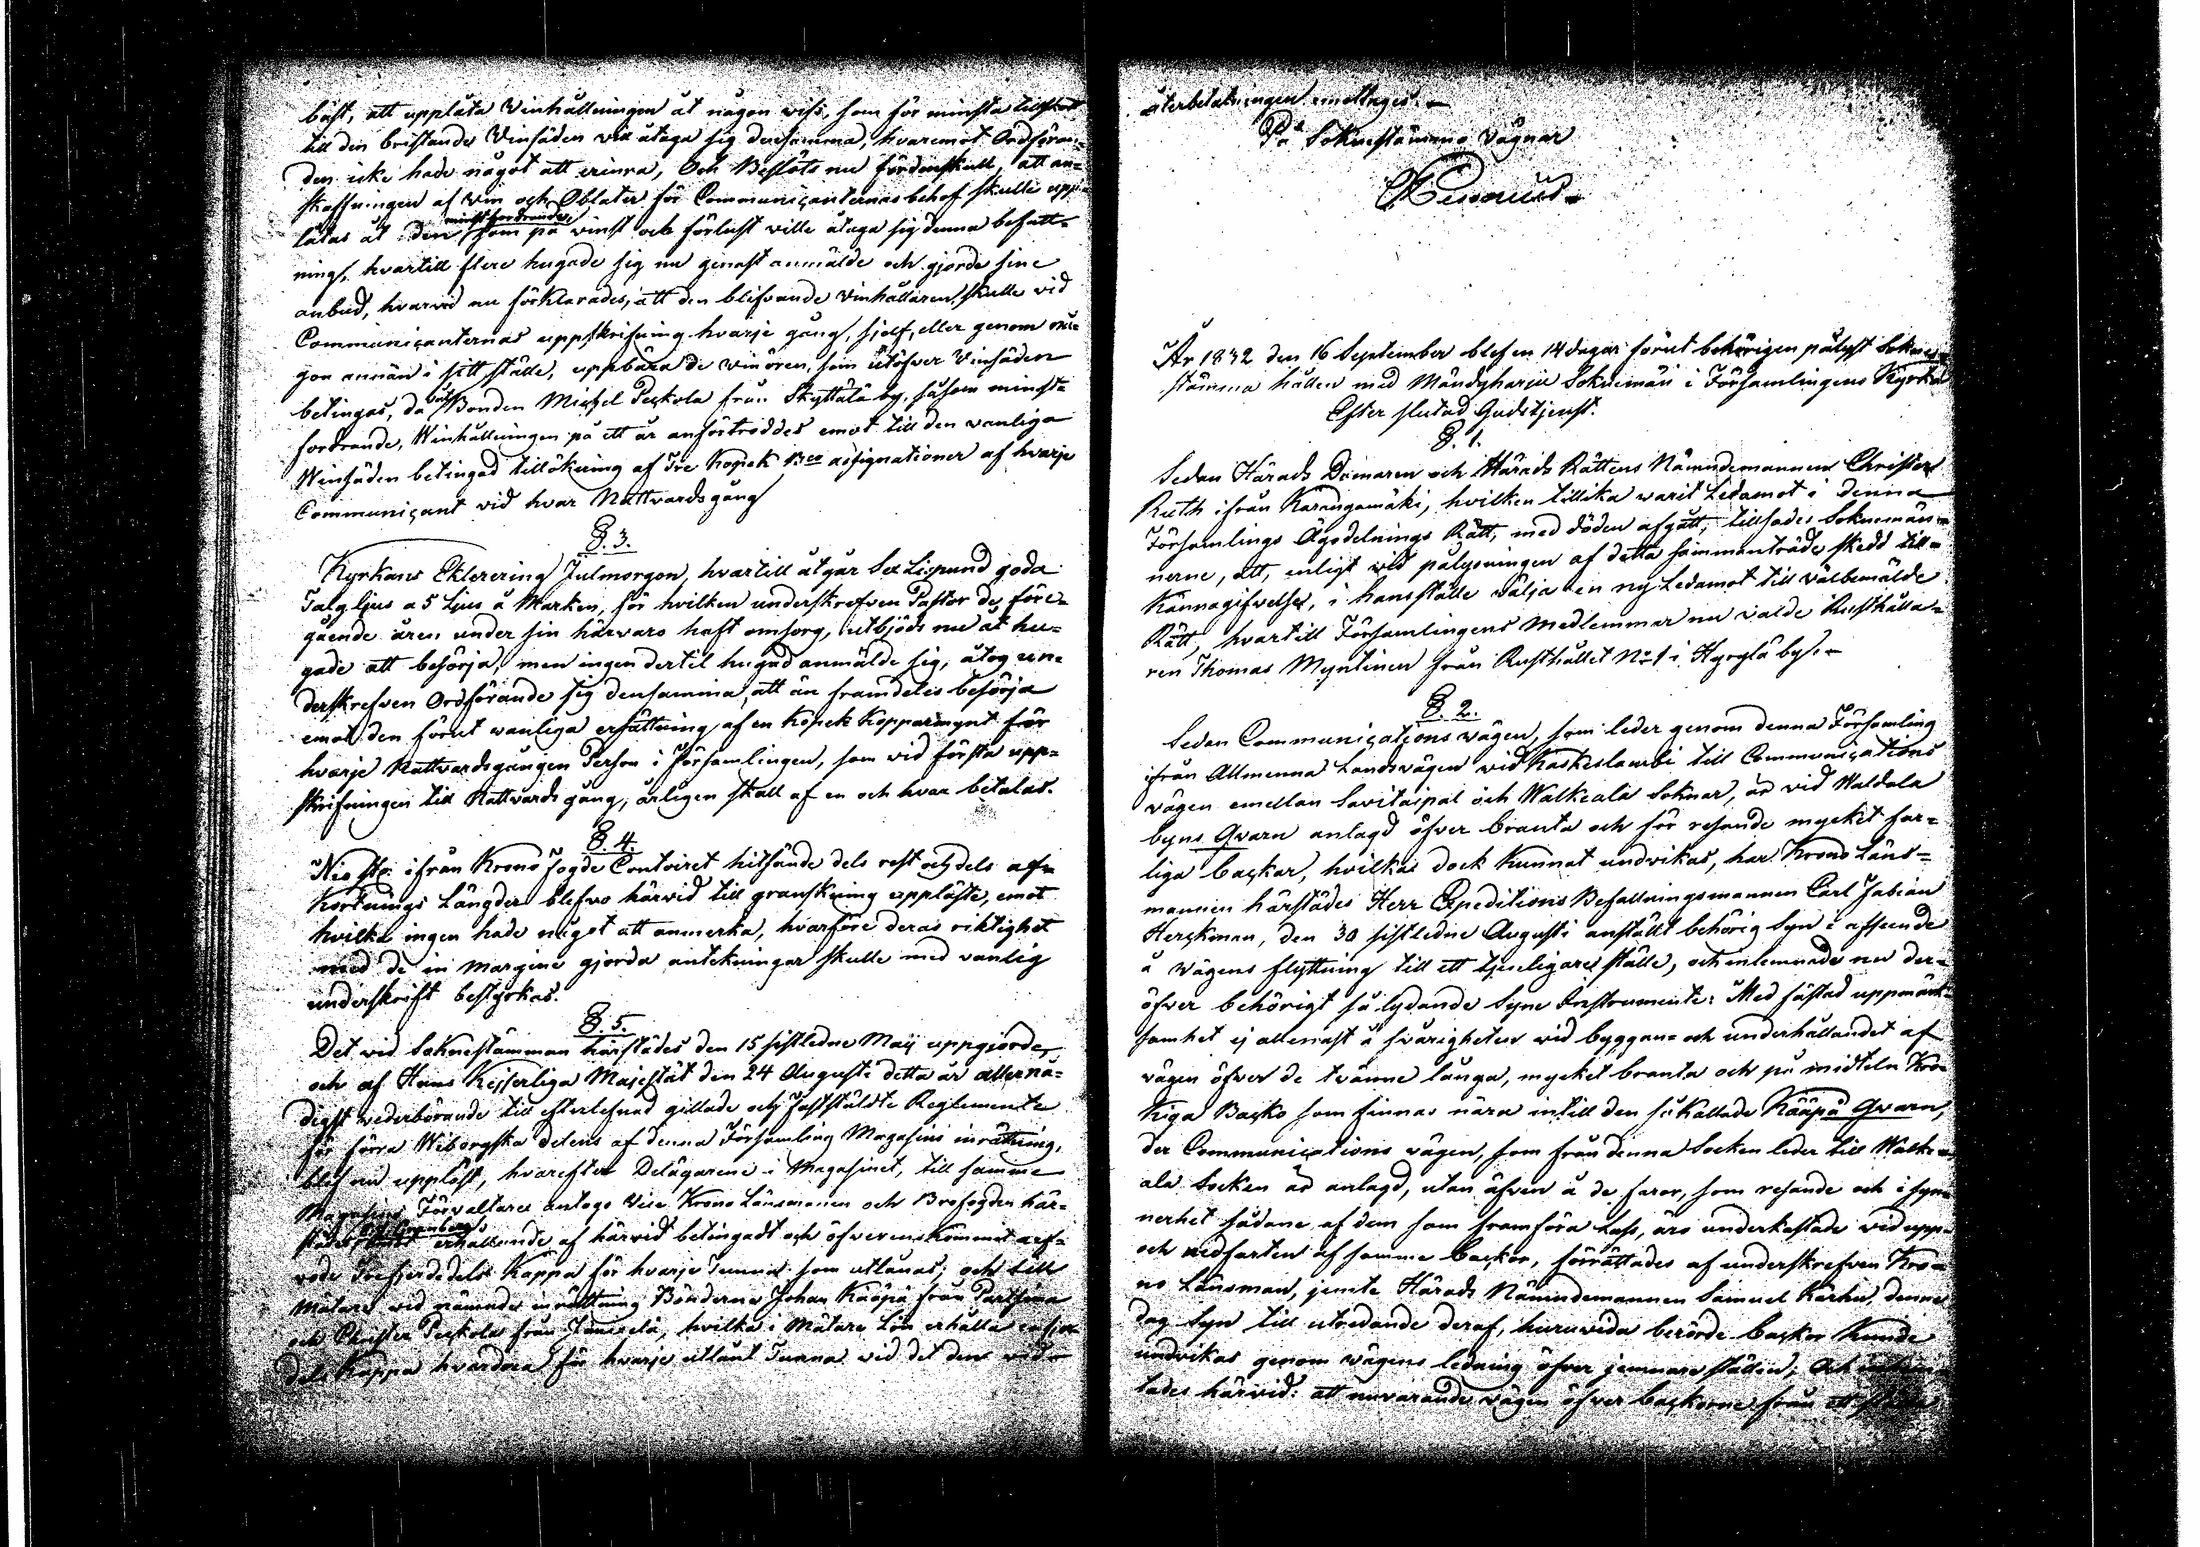 bäst, att upplåta Vinhållningen åt någon viss, som för minsta tillskott
till den bristande Vinsäden vill åtaga sig densamma, hvaremot Ordföran-
den icke hade något att erinra, Och Beslöts nu fördenskull, att an-
skaffningen af Vin och Oblater för Communiçanternas behof skulle upp-
låtas åt den minstfordrande, som på vinst och förlust ville åtaga sig denna befatt-
ning, hvartill flere hugade sig nu genast anmälde och gjorde sine
anbud, hvarvid nu förklarades, att den blifvande Vinhållaren, skulle vid
Communiçanternas uppskrifning hvarje gång, sjelf, eller genom nå-
gon annan i sitt ställe, uppbära de vinören, som utöfver Vinsäden
betingas, då Bonden Michel Peskola från Skyttälä by, såsom minst-
fordrande, Winhållningen på ett år anförtroddes emot till den vanliga
Winsäden betingad tillökning af Tre Kopek Bco assignationer af hvarje
Communiçant vid hvar Nattvardsgång
§. 3.
Kyrkans Eklerering Julmorgon, hvartill åtgår Sex Lispund goda
Talgljus a 5 Ljus å Marken, för hvilken underskrefven Pastor de före-
gående åren under sin härvaro haft omsorg, utbjöds nu åt hu-
gade att besörja, men ingen dertil hugad anmälde sig, åtog un-
derskrefven Ordförande sig densamma, att än framdeles besörja
emot den förut vanliga ersättning, af en Kopek Kopparmynt för
hvarje Nattvardsgången Person i Församlingen, som vid första upp-
skrifningen till Nattvards gång, årligen skall af en och hvar betalas.
§. 4.
Nio st. ifrån Krono Fogde Contoiret hitsände dels rest och dels af-
kortnings Längder blefvo härvid till granskning uppläste, emot
hvilka ingen hade något att anmerka, hvarföre deras riktighet
med de in margine gjorda antekningar skulle med vanlig
underskrift bestyrkas.
§. 5.
Det vid Soknestämman härstädes den 15 sistledne Maij uppgjorde,
och af Hans Kejserliga Majestät den 24 Augusti detta år allernå-
digst vederbörande till efterlefnad gillade och faststäldte Reglemente
för förra Wiborgska delens af denna Församling Magasins inrättning,
blef nu uppläst, hvarefter Delägarene i Magasinet, till samme
Magasins Förvaltare antogo Vice Krono Länsmannen och Brofogden här-
städes, erhållande af härvid betingadt och öfverenskommet arf-
vode Trefjerdedels Kappa för hvarje Tunna som utlånas; och till
Mätare vid nämnde inrättning Bönderna Johan Kääpä från Partsima
och Christer Peskola från, hvilka i Mätare Lön erhålla en fjer-
dels Kappa hvardera för hvarje utlånt Tunna vid det den vid
återbetalningen emottages. -
På Soknestämmans Vägnar
År 1832 den 16 September blef en 14 dagar förut behörigen pålyst Sokne-
stämma hållen med Mändyharju Soknemän i Församlingens Kyrka
Efter slutad Gudstjenst.
§. 1.
Sedan Härads Domaren och Härads Rättens Nämndemannen Christer
Ruth ifrån Karangamäki, hvilken tillika warit Ledamot i denna
Församlings Ägodelnings Rätt, med döden afgått, tillsades Soknemän-
nerne, att, enligt vid pålysningen af detta sammanträde skedd till-
kännagifvelse, i hans ställe välja en ny Ledamot till välbemälde
Rätt, hvartill Församlingens Medlemmar nu valde Rusthålla-
ren Thomas Myntinen från Rusthållet No 1 i Hyyrylä by. -
§. 2.
Sedan Communiçations vägen, som leder genom denna Församling
ifrån Allmenna Landsvägen vid Kaskeslambi till Communications
vägen emellan Savitaipal och Walkeala Soknar, är vid Waldola
byns Qvarn anlagd öfver branta och för resande mycket far-
liga backar, hvilka dock kunnat undvikas, har Krono Läns-
mannen härstädes Herr Expeditions Befallningsmannen Carl Fabian
Herckman, den 30 sistledne Augusti anställt behörig Syn i afseende
å vägens flyttning till ett tjenligare ställe, och inlemnade nu der-
öfver behörigt så lydande Syne Instrumente: Med fästad uppmärk-
samhet ej allenast å svårigheten vid byggan- och underhållandet af
vägen öfver de tvänne långa, mycket branta och på midteln Kro-
kiga Backar som finnas nära intill den så kallade Kääpä Qvarn,
der Communications vägen, som från denna Socken leder till Walke-
ala Socken är anlagd, utan äfven å de faror, som resande och i syn-
nerhet sådane af dem som framföra Lass, äro underkastade vid upp-
och nedfarten af samme backar, förrättades af underskrefven Kro-
no Länsman, jemte Härads Nämndemannen Samuel Kärhu, denne
dag Syn till utredande deraf, huruvida berörde backar kunde
undvikas genom vägens ledning öfver jemnare ställen; Och
lades härvid: att nuvarande vägen öfver backarne från ett